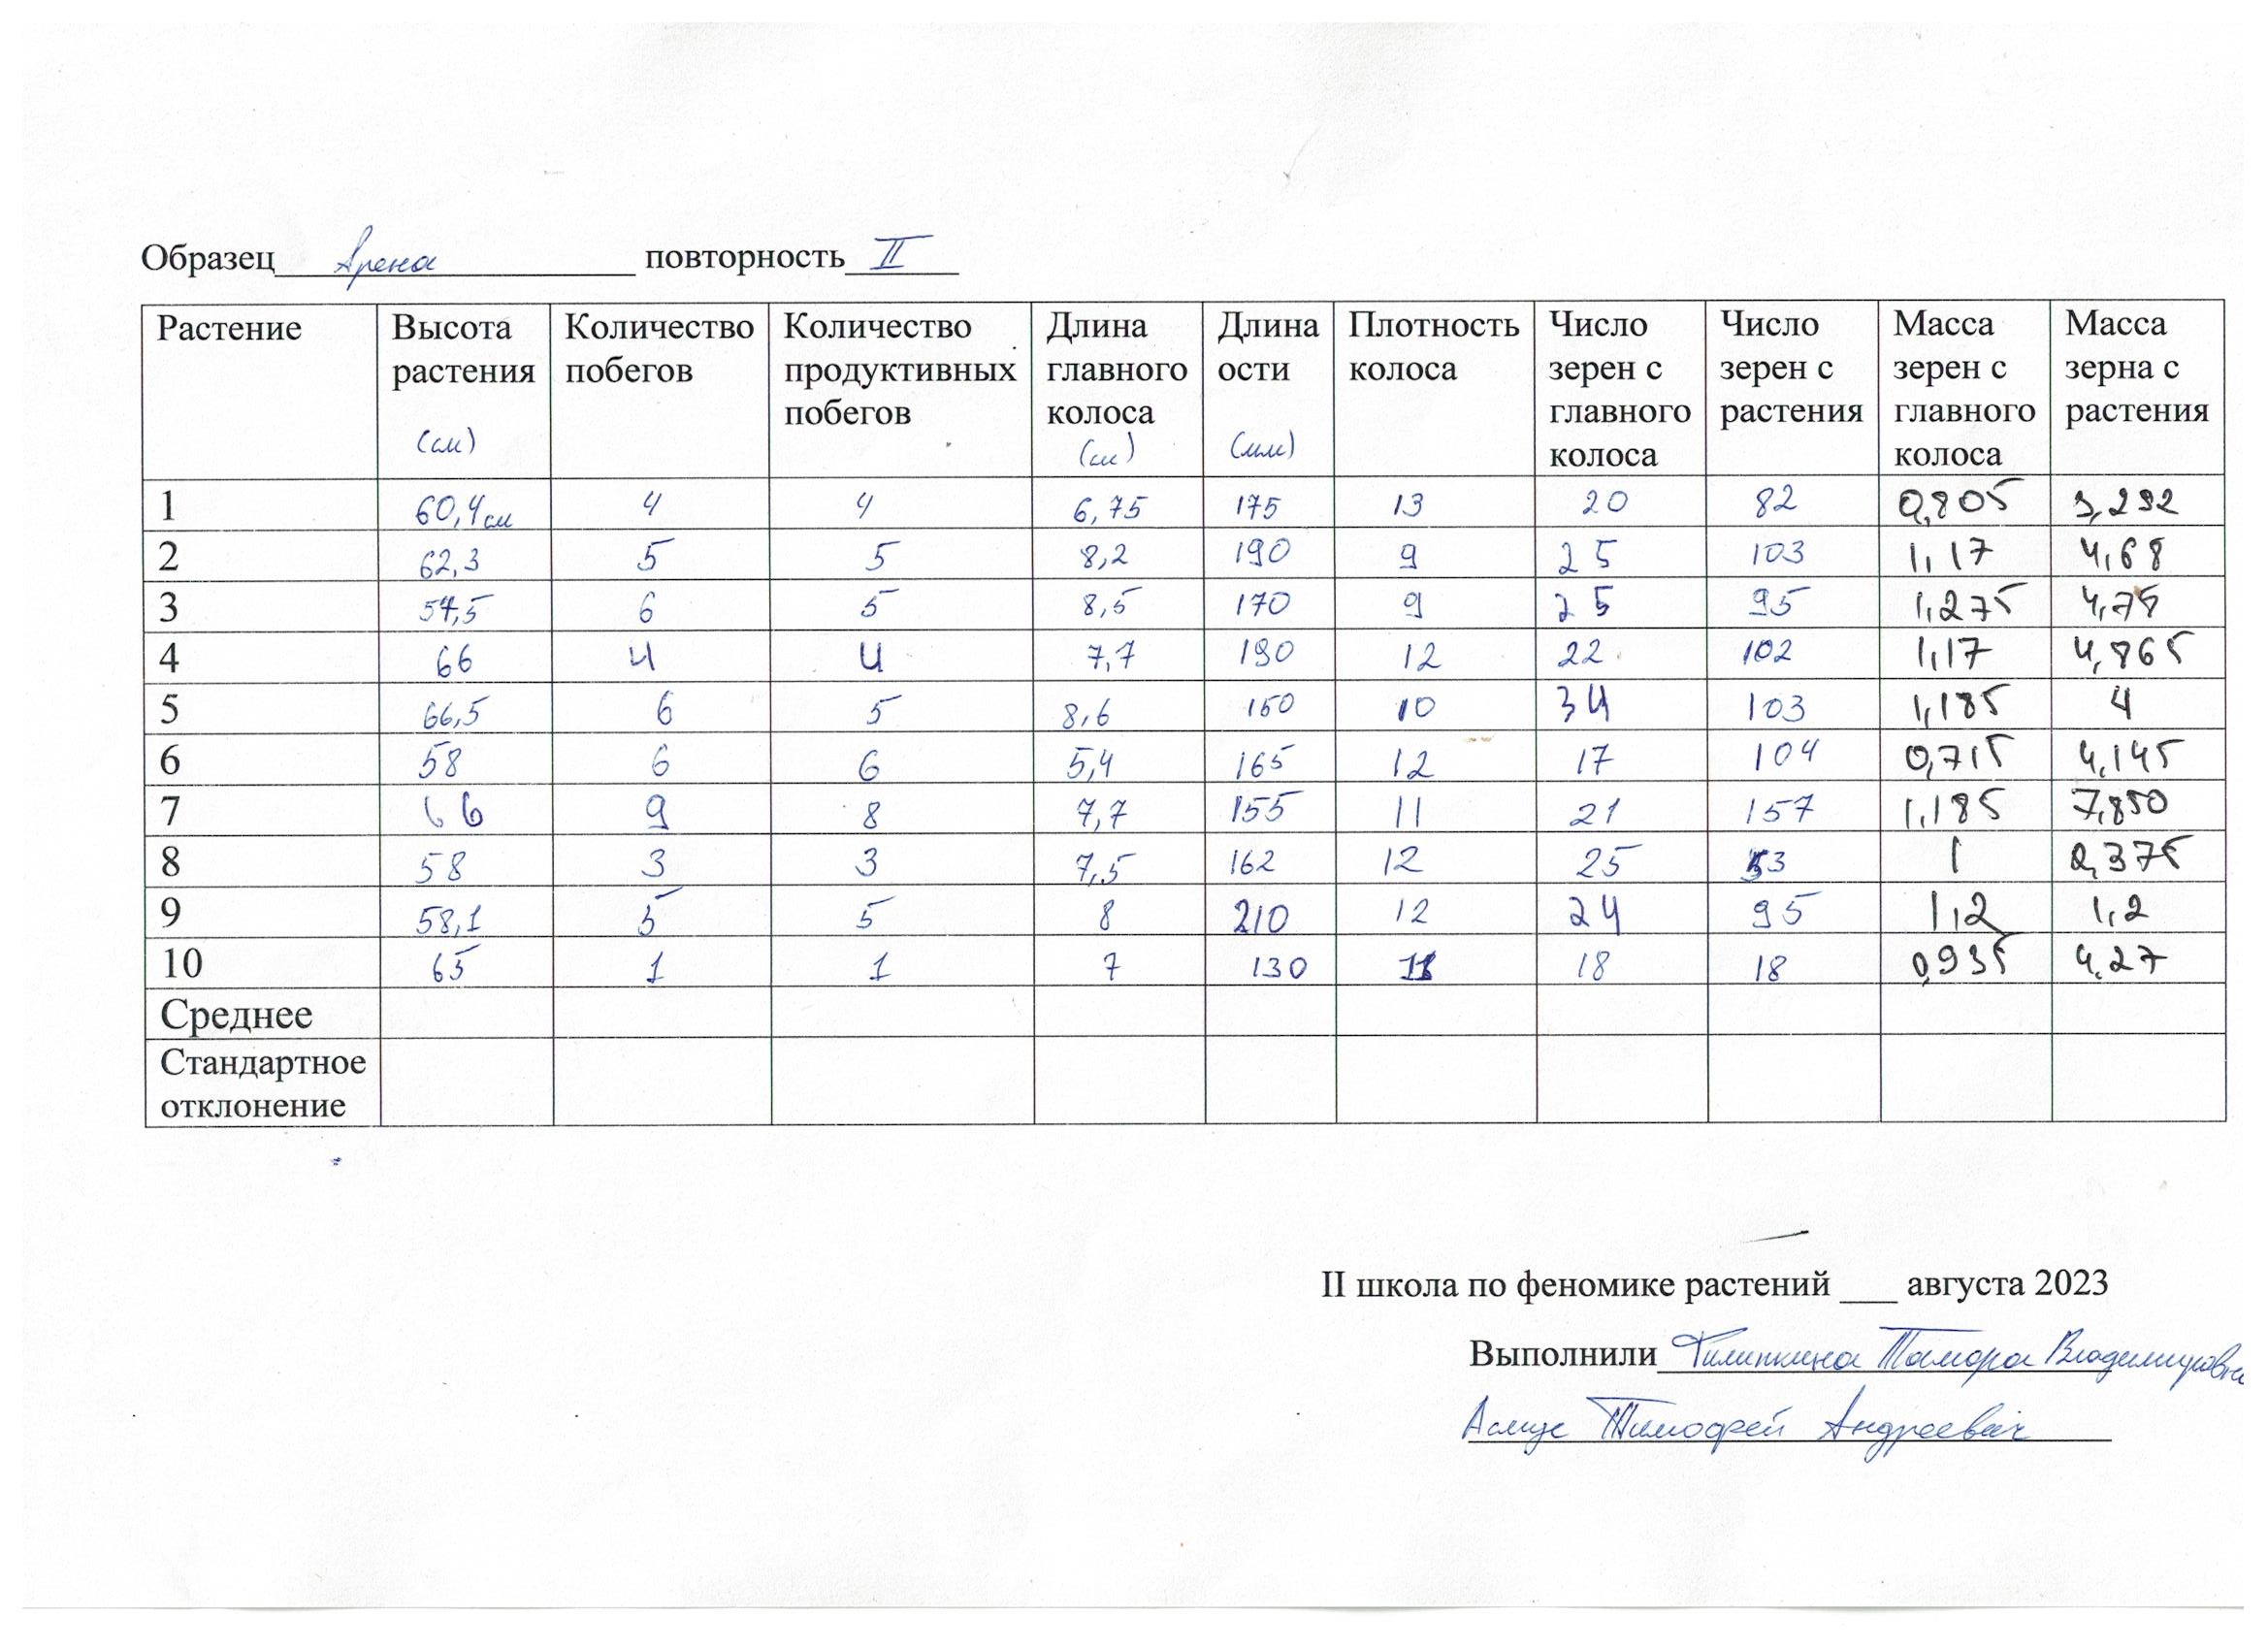 Образец Арена повторность II
Растение Высота растения (см) Количество побегов Количество продуктивных побегов Длина главного колоса (см) Длина ости (мм) Плотность колоса Число зерен с главного колоса Число зерен с растения Масса зерен с главного колоса Масса зерна с растения
1 60,4см 4 4 6,75 175 13 20 82 0,805 3,292
2 62,3 5 5 8,2 190 9 25 103 1,17 4,68
3 6 5 8,5 170 9 25 95 1,275
4 66 4 4 7,7 190 12 22 102 1,17 4,865
5 66,5 6 5 8,6 150 10 34 103 1,185 4
6 58 6 6 5,4 165 12 17 104 0,715 4,145
7 66 9 8 7,7 155 11 21 157 1,185 7,850
8 58 3 3 7,5 162 12 25 53 1 2,375
9 58,1 5 5 8 210 12 24 95 1,2 1,2
10 65 1 1 7 130 11 18 18 0,935 4,27
Среднее
Стандартное отклонение
II школа по феномике растений ___ августа 2023
Выполнили Тамара Владимировна
Асмус Тимофей Андреевич